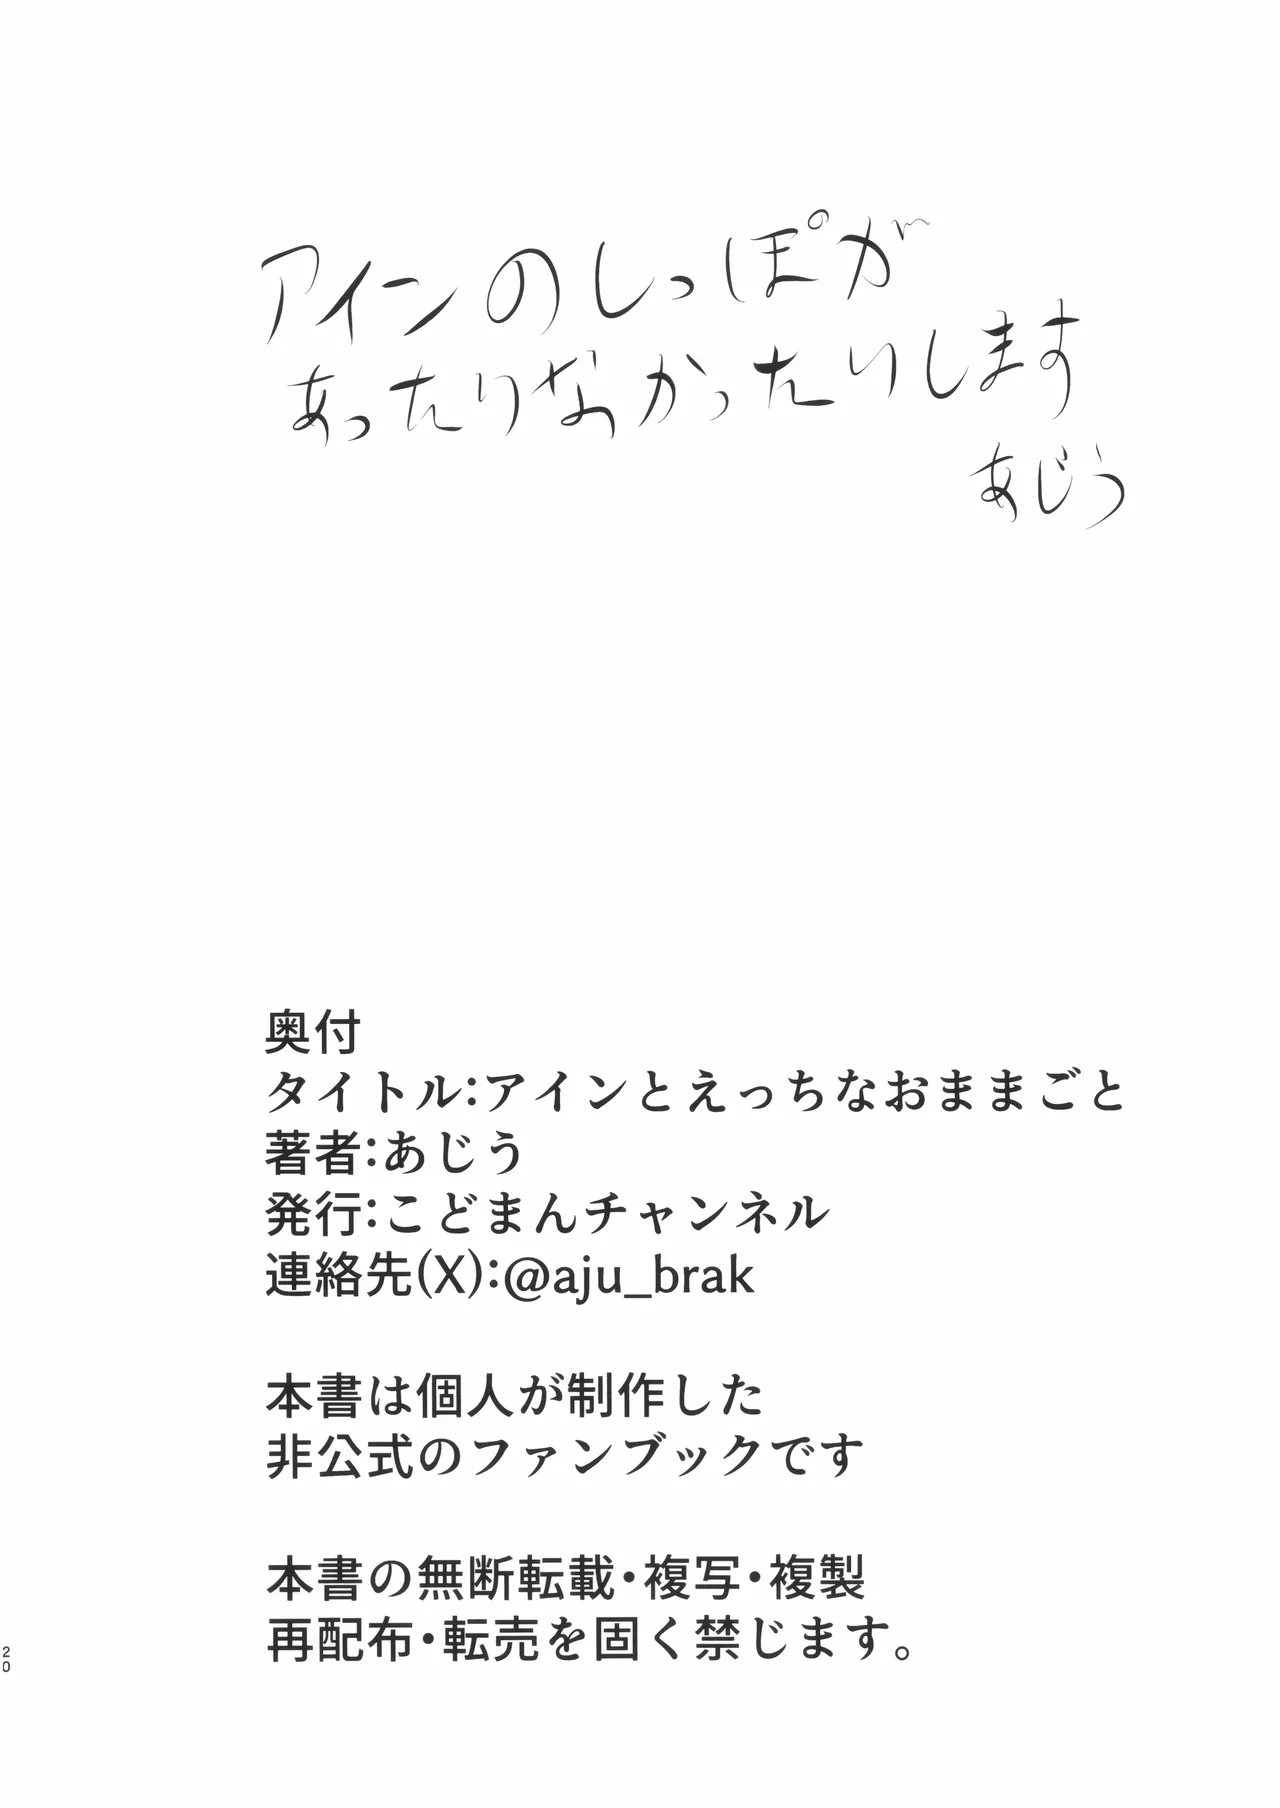 アインのしっぽが
あったりなかったりします
あじう
奥付
タイトル:アインとえっちなおままごと
著者:あじう
発行:こどまんチャンネル
連絡先(X):@aju_brak
本書は個人が制作した
非公式のファンブックです
本書の無断転載・複写・複製
再配布・転売を固く禁じます。
20